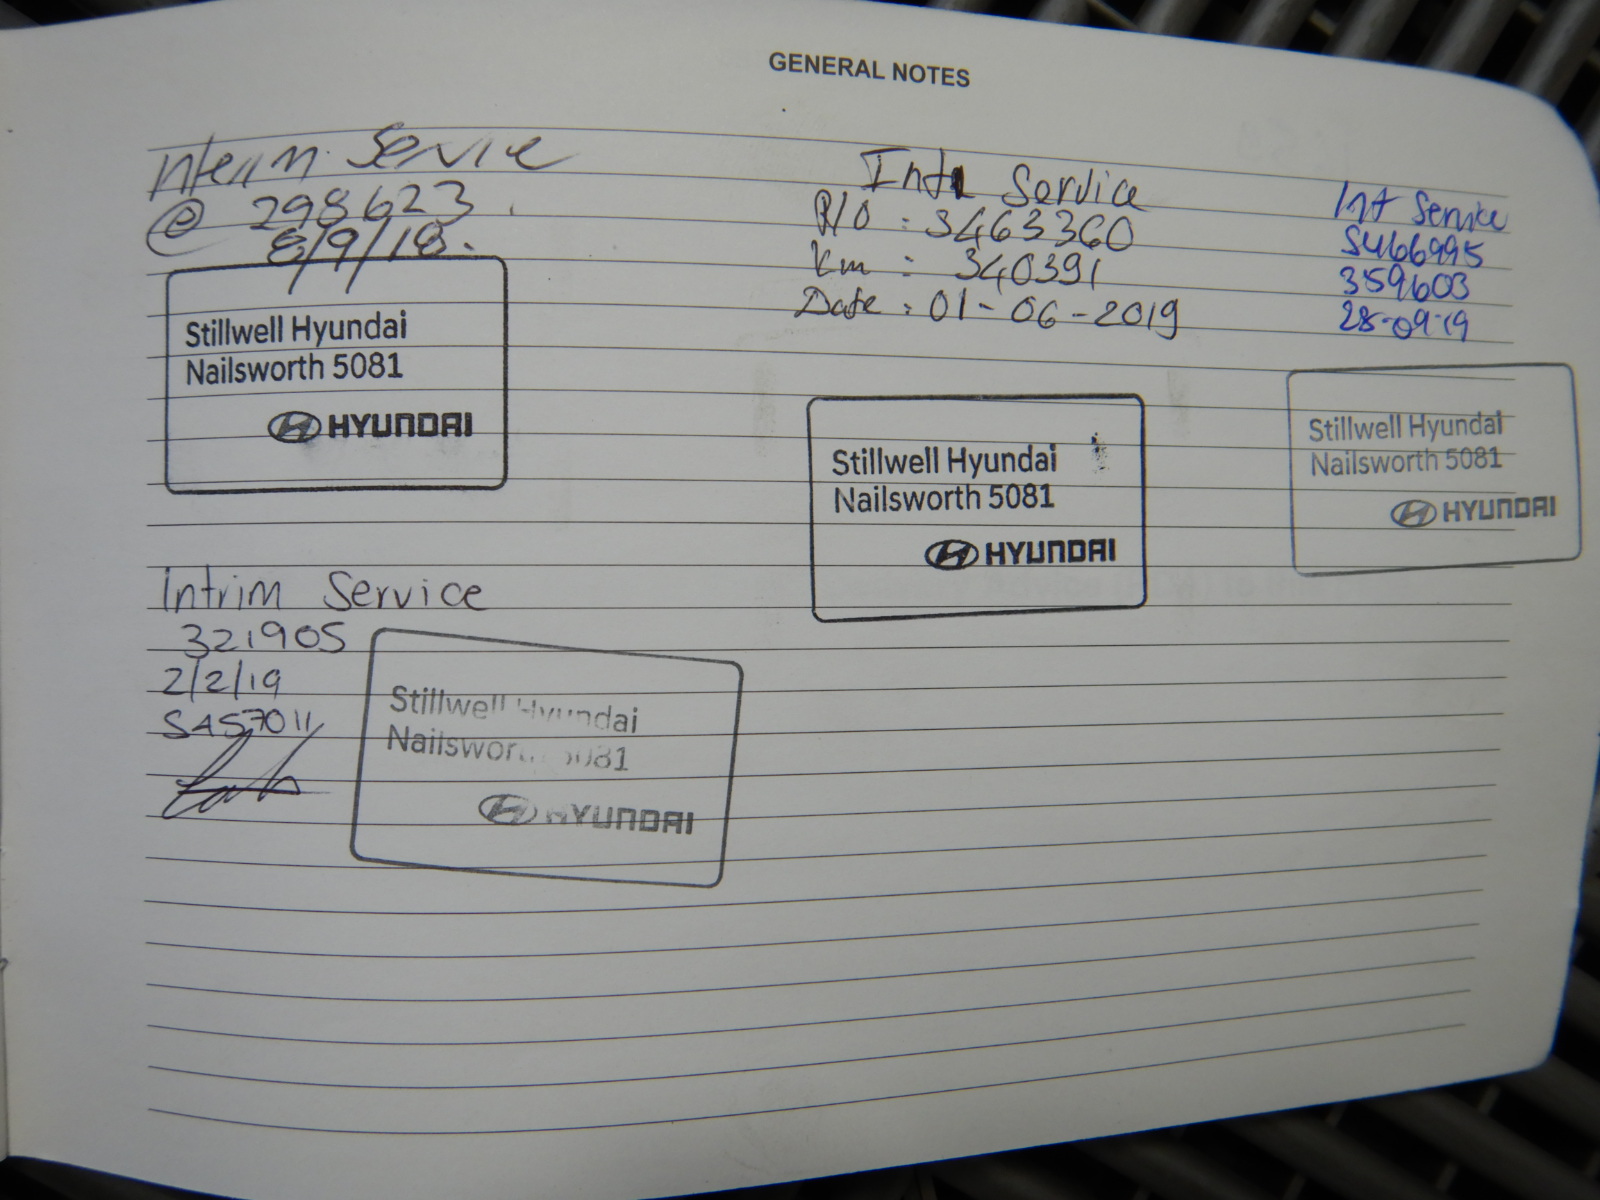 GENERAL NOTES
Interim Service
@ 298623.
8/9/18.
Stillwell Hyundai
Nailsworth 5081
HYUNDAI
Intrim Service
321905
2/2/19
Stillwell Hyundai
Nailsworth 5081
HYUNDAI
Service
R/O : 3463360
Km : 340391
Date : 01-06-2019
Stillwell Hyundai
Nailsworth 5081
HYUNDAI
Int Service
359603
28-09-19
Stillwell Hyundai
Nailsworth 5081
HYUNDAI